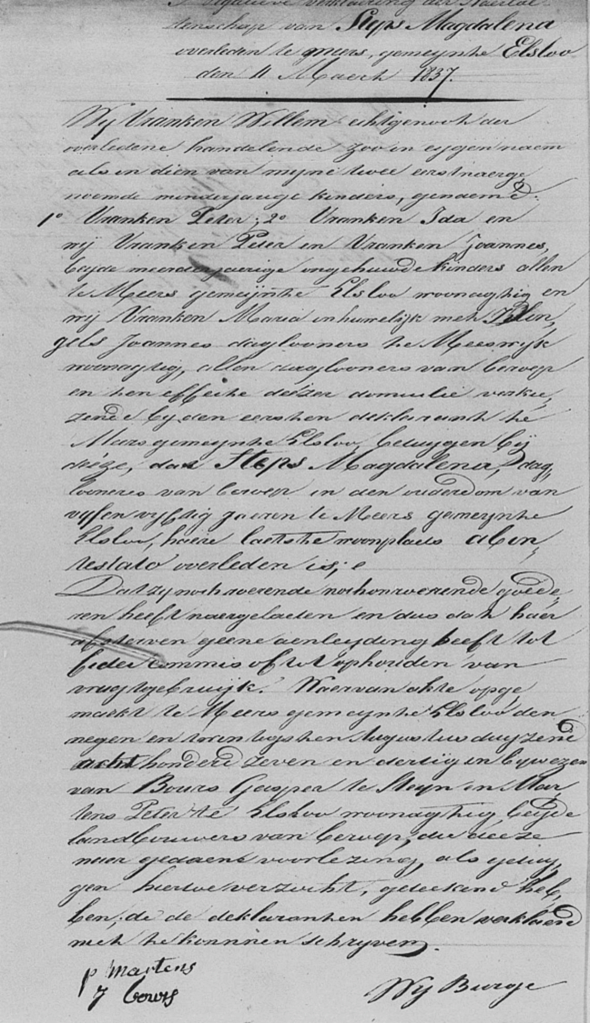 Negative verklaring der Naerlat
tenschap van Steps Magdalena
overleden te meers, gemeynte Elsloo
den 11 Maert 1837.
Wij Vranken Willem echtgenoot der
overledene handelende zoo in eygen naem
als in dien van myne twee eerstnaerge
noemde minderjarige kinders, genaemd:
1º Vranken Peter; 2º Vranken Ida en
wij Vranken Peter en Vranken Joannes,
beyde meerderjaerige ongehuwde kinders allen
te Meers gemeijnte Elsloo woonagtig en
wij Vranken Maria in huwelijk met
gels Joannes daglooners te Meeswijk
woonagtig, allen daglooners van beroep
en ten effecte dézer domicilie verkie,
zende by den eersten deklarant te
Meers gemeynte Elsloo, betuygen bij
déze, dat Steps Magdalena, dag,
looneres van beroep in den ouderdom van
vyf en vyftig jaeren te Meers gemeynte
Elsloo, haere laetste woonplaets abin,
testato overleden is; e
Dat zy noch roerende noch onroerende goede
ren heeft naergelaeten en dus dat haer
afsterven geene aenleyding heeft tot
fidei commis of tot ophouden van
vrugtgebruijk. Waervan akte opge
maekt te Meers gemeynte Elsloo den
negen en twintigsten Augustus duyzend
acht honderd zeven en dertig in bywezen
van Bours Gasper te Steyn en Mar
tens Peter te Elsloo woonagtig, beyde
landbouwers van beroep, die deeze
naer gedaene voorlezing, als getuy,
gen hiertoe verzocht, geteekend heb,
ben; de de deklaranten hebben verklaerd
niet te konnen schryven.
p martens
J bours
Wij Burge